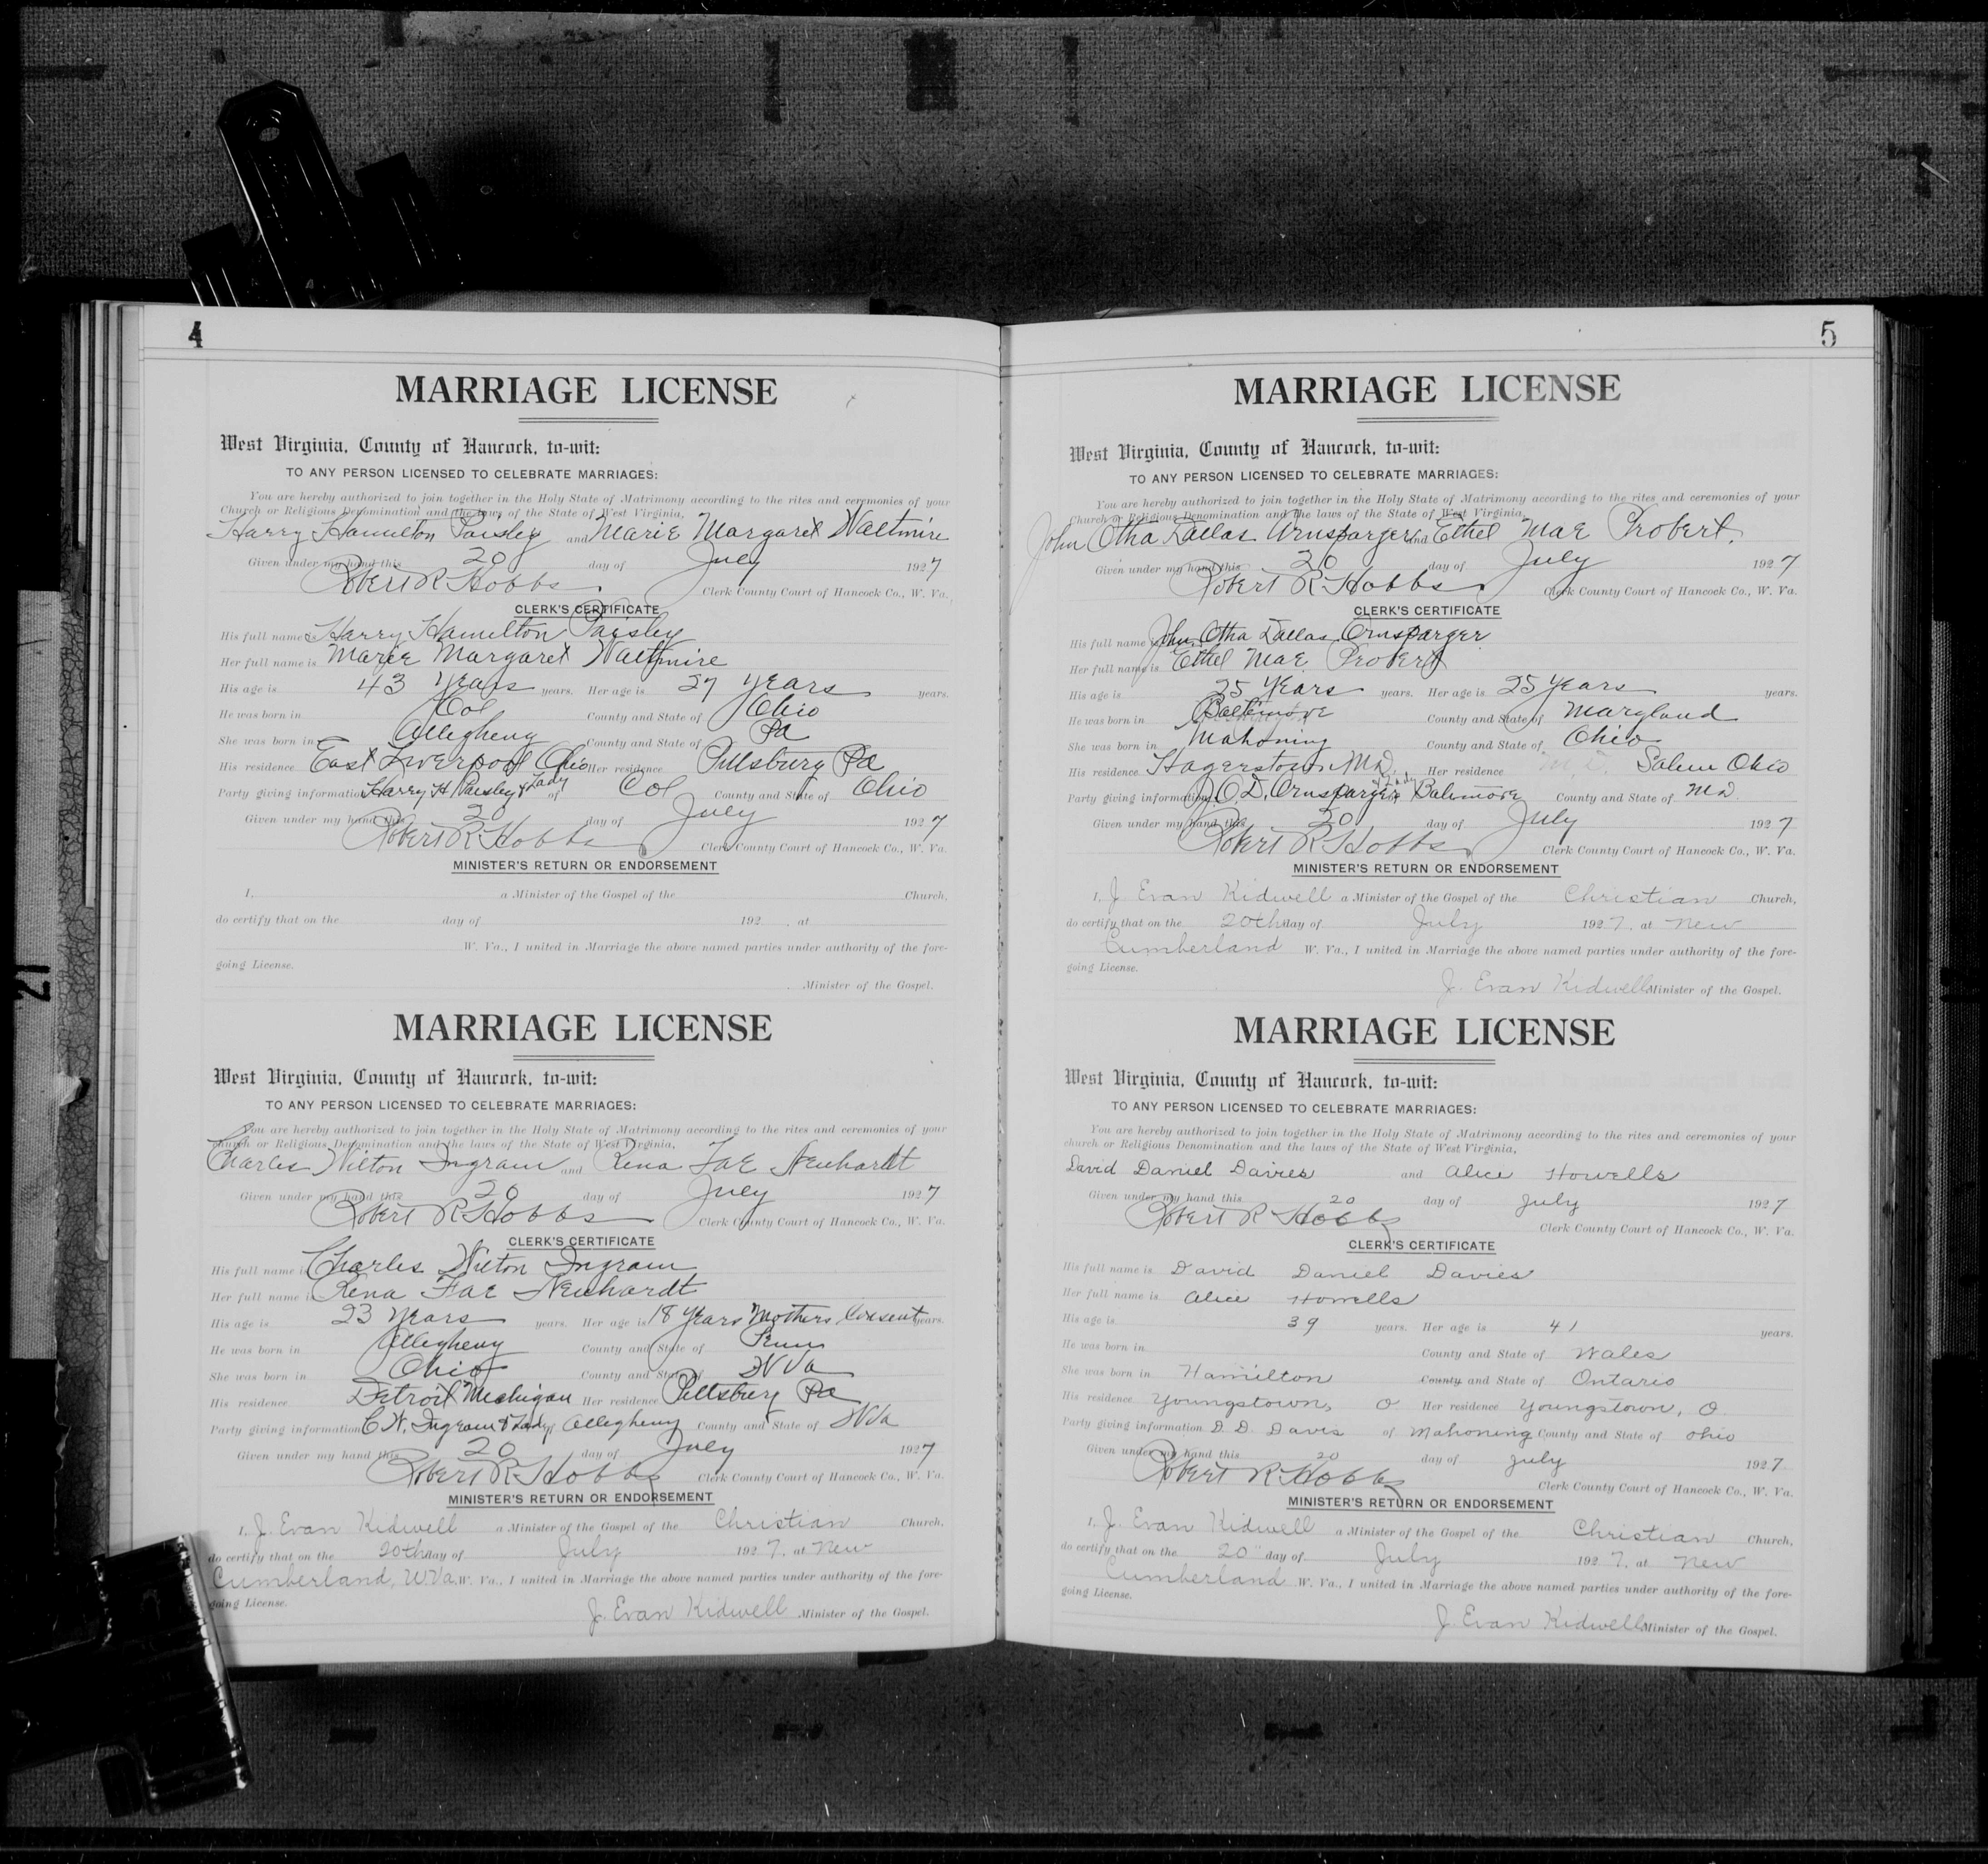 4
MARRIAGE LICENSE
West Virginia, County of Hancock, to-wit:
TO ANY PERSON LICENSED TO CELEBRATE MARRIAGES:
You are hereby authorized to join together in the Holy State of Matrimony according to the rites and ceremonies of your
Church or Religious Denomination and the laws of the State of West Virginia,
Harry Hamilton Paisley and Marie Margaret Waltmire
Given under my hand this 20 day of July 1927
Robert R Hobbs Clerk County Court of Hancock Co., W. Va.
CLERK'S CERTIFICATE
His full name is Harry Hamilton Paisley
Her full name is Marie Margaret Waltmire
His age is 43 years years. Her age is 27 years years.
He was born in Col County and State of Ohio
She was born in Allegheny County and State of Pa
His residence East Liverpool Ohio Her residence Pittsburg Pa
Party giving information Harry H Paisley & Lady of Col County and State of Ohio
Given under my hand this 20 day of July 1927
Robert R Hobbs Clerk County Court of Hancock Co., W. Va.
MINISTER'S RETURN OR ENDORSEMENT
I, a Minister of the Gospel of the Church,
do certify that on the day of 192 , at
W. Va., I united in Marriage the above named parties under authority of the fore-
going License.
Minister of the Gospel.
MARRIAGE LICENSE
West Virginia, County of Hancock, to-wit:
TO ANY PERSON LICENSED TO CELEBRATE MARRIAGES:
You are hereby authorized to join together in the Holy State of Matrimony according to the rites and ceremonies of your
church or Religious Denomination and the laws of the State of West Virginia,
Charles Wilton Ingram and Rena Fae Neuhardt
Given under my hand this 20 day of July 1927
Robert R Hobbs Clerk County Court of Hancock Co., W. Va.
CLERK'S CERTIFICATE
His full name is Charles Wilton Ingram
Her full name is Rena Fae Neuhardt
His age is 23 years years. Her age is 18 years Mothers Consent years.
He was born in Allegheny County and State of Penn
She was born in Ohio County and State of W Va
His residence Detroit Michigan Her residence Pittsburg Pa
Party giving information C W. Ingram & Lady of Allegheny County and State of W Va
Given under my hand this 20 day of July 1927
Robert R Hobbs Clerk County Court of Hancock Co., W. Va.
MINISTER'S RETURN OR ENDORSEMENT
I, J. Evan Kidwell a Minister of the Gospel of the Christian Church,
do certify that on the 20th day of July 1927, at New
Cumberland, W.Va. W. Va., I united in Marriage the above named parties under authority of the fore-
going License.
J. Evan Kidwell Minister of the Gospel.
5
MARRIAGE LICENSE
West Virginia, County of Hancock, to-wit:
TO ANY PERSON LICENSED TO CELEBRATE MARRIAGES:
You are hereby authorized to join together in the Holy State of Matrimony according to the rites and ceremonies of your
Church or Religious Denomination and the laws of the State of West Virginia,
John Otha Dallas Ornsparger and Ethel Mae Probert.
Given under my hand this 20 day of July 1927
Robert R Hobbs Clerk County Court of Hancock Co., W. Va.
CLERK'S CERTIFICATE
His full name is John Otha Dallas Ornsparger
Her full name is Ethel Mae Probert
His age is 25 years years. Her age is 25 years years.
He was born in Baltimore County and State of Maryland
She was born in Mahoning County and State of Ohio
His residence Hagerstown Md. Her residence Salem Ohio
Party giving information J. O. D. Ornsparger & Lady Baltimore County and State of Md.
Given under my hand this 20 day of July 1927
Robert R Hobbs Clerk County Court of Hancock Co., W. Va.
MINISTER'S RETURN OR ENDORSEMENT
I, J Evan Kidwell a Minister of the Gospel of the Christian Church,
do certify that on the 20th day of July 1927, at New
Cumberland W. Va., I united in Marriage the above named parties under authority of the fore-
going License.
J. Evan Kidwell Minister of the Gospel.
MARRIAGE LICENSE
West Virginia, County of Hancock, to-wit:
TO ANY PERSON LICENSED TO CELEBRATE MARRIAGES:
You are hereby authorized to join together in the Holy State of Matrimony according to the rites and ceremonies of your
church or Religious Denomination and the laws of the State of West Virginia,
David Daniel Davies and Alice Howells
Given under my hand this 20 day of July 1927
Robert R Hobbs Clerk County Court of Hancock Co., W. Va.
CLERK'S CERTIFICATE
His full name is David Daniel Davies
Her full name is Alice Howells
His age is 39 years. Her age is 41 years.
He was born in County and State of Wales
She was born in Hamilton County and State of Ontario
His residence Youngstown, O Her residence Youngstown, O.
Party giving information D. D. Davis of Mahoning County and State of Ohio
Given under my hand this 20 day of July 1927.
Robert R Hobbs Clerk County Court of Hancock Co., W. Va.
MINISTER'S RETURN OR ENDORSEMENT
I, J. Evan Kidwell a Minister of the Gospel of the Christian Church,
do certify that on the 20" day of July 1927, at New
Cumberland W. Va., I united in Marriage the above named parties under authority of the fore-
going License.
J Evan Kidwell Minister of the Gospel.